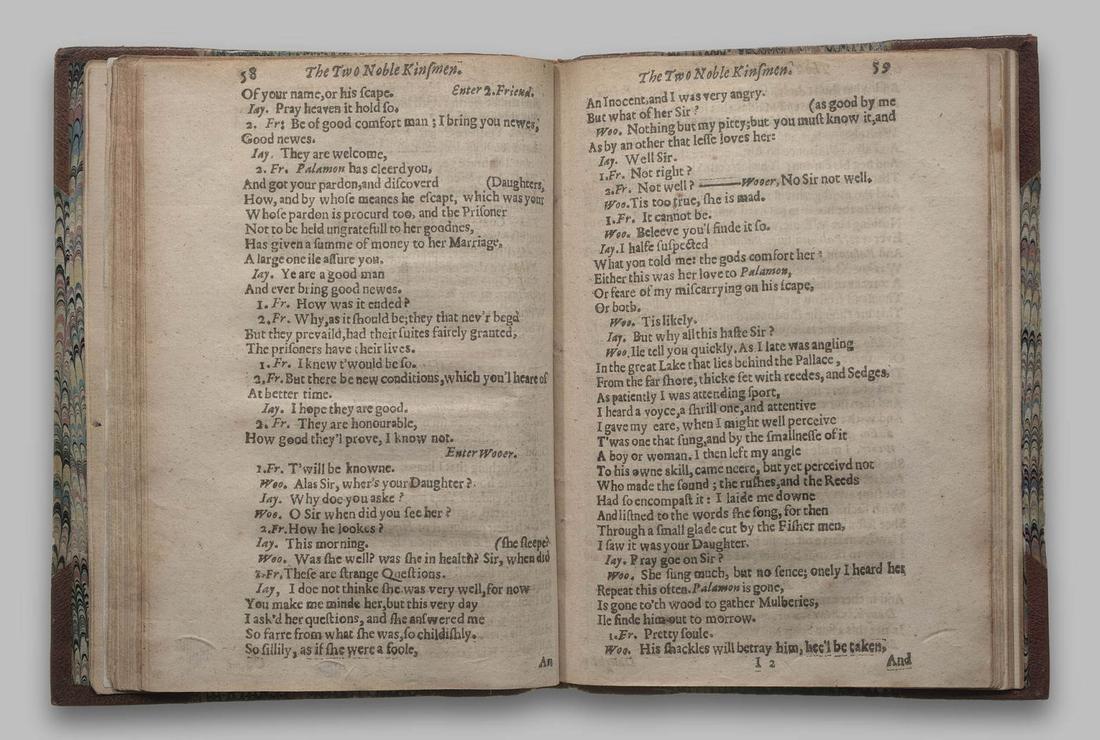 58 The Two Noble Kinſmen.
Of your name, or his ſcape. Enter 2. Friend.
Iay. Pray heaven it hold ſo.
2. Fr: Be of good comfort man; I bring you newes,
Good newes.
Iay. They are welcome,
2. Fr. Palamon has cleerd you,
And got your pardon, and diſcoverd (Daughters,
How, and by whoſe meanes he eſcapt, which was your
Whoſe pardon is procurd too, and the Priſoner
Not to be held ungratefull to her goodnes,
Has given a ſumme of money to her Marriage,
A large one ile aſſure you.
Iay. Ye are a good man
And ever bring good newes.
1. Fr. How was it ended?
2. Fr. Why, as it ſhould be; they that nev'r begd
But they prevaild, had their ſuites fairely granted,
The priſoners have their lives.
1. Fr. I knew t'would be ſo.
2. Fr. But there be new conditions, which you'l heare of
At better time.
Iay. I hope they are good.
2. Fr. They are honourable,
How good they'l prove, I know not.
Enter Wooer.
1. Fr. T'will be knowne.
Woo. Alas Sir, wher's your Daughter?
Iay. Why doe you aske?
Woo. O Sir when did you ſee her?
2. Fr. How he lookes?
Iay. This morning. (ſhe ſleepe?
Woo. Was ſhe well? was ſhe in health? Sir, when did
1. Fr. Theſe are ſtrange Queſtions.
Iay, I doe not thinke ſhe was very well, for now
You make me minde her, but this very day
I ask'd her queſtions, and ſhe anſwered me
So farre from what ſhe was, ſo childiſhly.
So ſillily, as if ſhe were a foole,
An
The Two Noble Kinſmen. 59
An Inocent, and I was very angry.
But what of her Sir? (as good by me
Woo. Nothing but my pitty; but you muſt know it, and
As by an other that leſſe loves her:
Iay. Well Sir.
1. Fr. Not right?
2. Fr. Not well? ——Wooer, No Sir not well.
Woo. Tis too true, ſhe is mad.
1. Fr. It cannot be.
Woo. Beleeve you'l finde it ſo.
Iay. I halfe ſuſpected
What you told me: the gods comfort her:
Either this was her love to Palamon,
Or feare of my miſcarrying on his ſcape,
Or both.
Woo. Tis likely.
Iay. But why all this haſte Sir?
Woo. Ile tell you quickly. As I late was angling
In the great Lake that lies behind the Pallace,
From the far ſhore, thicke ſet with reedes, and Sedges,
As patiently I was attending ſport,
I heard a voyce, a ſhrill one, and attentive
I gave my eare, when I might well perceive
T'was one that ſung, and by the ſmallneſſe of it
A boy or woman. I then left my angle
To his owne skill, came neere, but yet perceivd not
Who made the ſound; the ruſhes, and the Reeds
Had ſo encompaſt it: I laide me downe
And liſtned to the words ſhe ſong, for then
Through a ſmall glade cut by the Fiſher men,
I ſaw it was your Daughter.
Iay. Pray goe on Sir?
Woo. She ſung much, but no ſence; onely I heard her
Repeat this often. Palamon is gone,
Is gone to'th wood to gather Mulberies,
Ile finde him out to morrow.
1. Fr. Pretty ſoule.
Woo. His ſhackles will betray him, hee'l be taken,
I 2 And